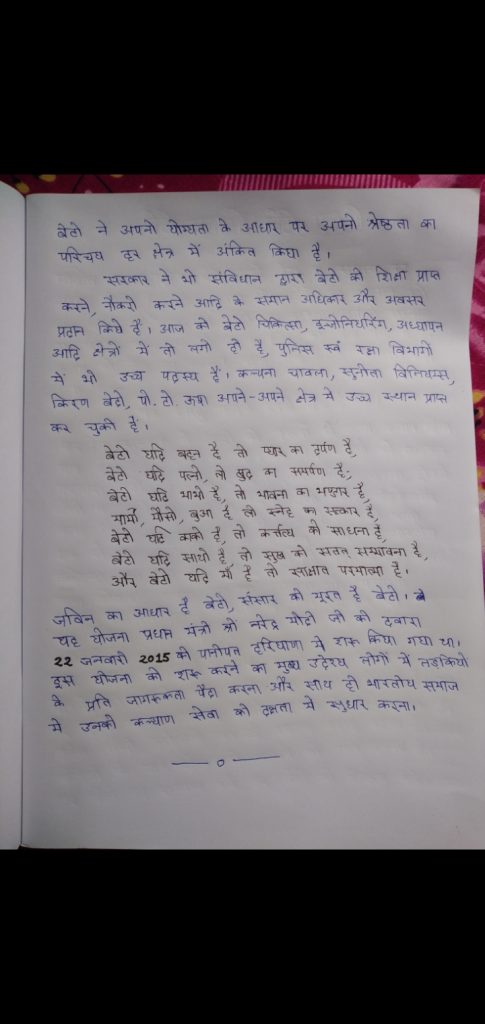 बेटी ने अपनी योग्यता के आधार पर अपनी श्रेष्ठता का
परिचय हर क्षेत्र में अंकित किया है।
सरकार ने भी संविधान द्वारा बेटी को शिक्षा प्राप्त
करने, नौकरी करने आदि के समान अधिकार और अवसर
प्रदान किये हैं। आज की बेटी चिकित्सा, इन्जीनियरिंग, अध्यापन
आदि क्षेत्रों में तो लगी ही है, पुलिस एवं रक्षा विभागों
में भी उच्च पदस्थ है। कल्पना चावला, सुनीता विलियम्स,
किरण बेदी, पी. टी. ऊषा अपने-अपने क्षेत्र में उच्च स्थान प्राप्त
कर चुकी हैं।
बेटी यदि बहन है तो प्यार का दर्पण है,
बेटी यदि पत्नी, तो खुद का समर्पण है,
बेटी यदि भाभी है, तो भावना का भण्डार है,
मामी, मौसी, बुआ है तो स्नेह का सत्कार है,
बेटी यदि काकी है, तो कर्त्तव्य की साधना है,
बेटी यदि साथी है तो सुख की सतत सम्भावना है,
और बेटी यदि माँ है तो साक्षात परमात्मा है।
जीवन का आधार है बेटी, संसार की मूरत है बेटी।
यह योजना प्रधान मंत्री श्री नरेंद्र मोदी जी के द्वारा
22 जनवरी 2015 को पानीपत हरियाणा में शुरू किया गया था।
इस योजना को शुरू करने का मुख्य उद्देश्य लोगों में लड़कियों
के प्रति जागरूकता पैदा करना और साथ ही भारतीय समाज
में उनकी कल्याण सेवा की दक्षता में सुधार करना।